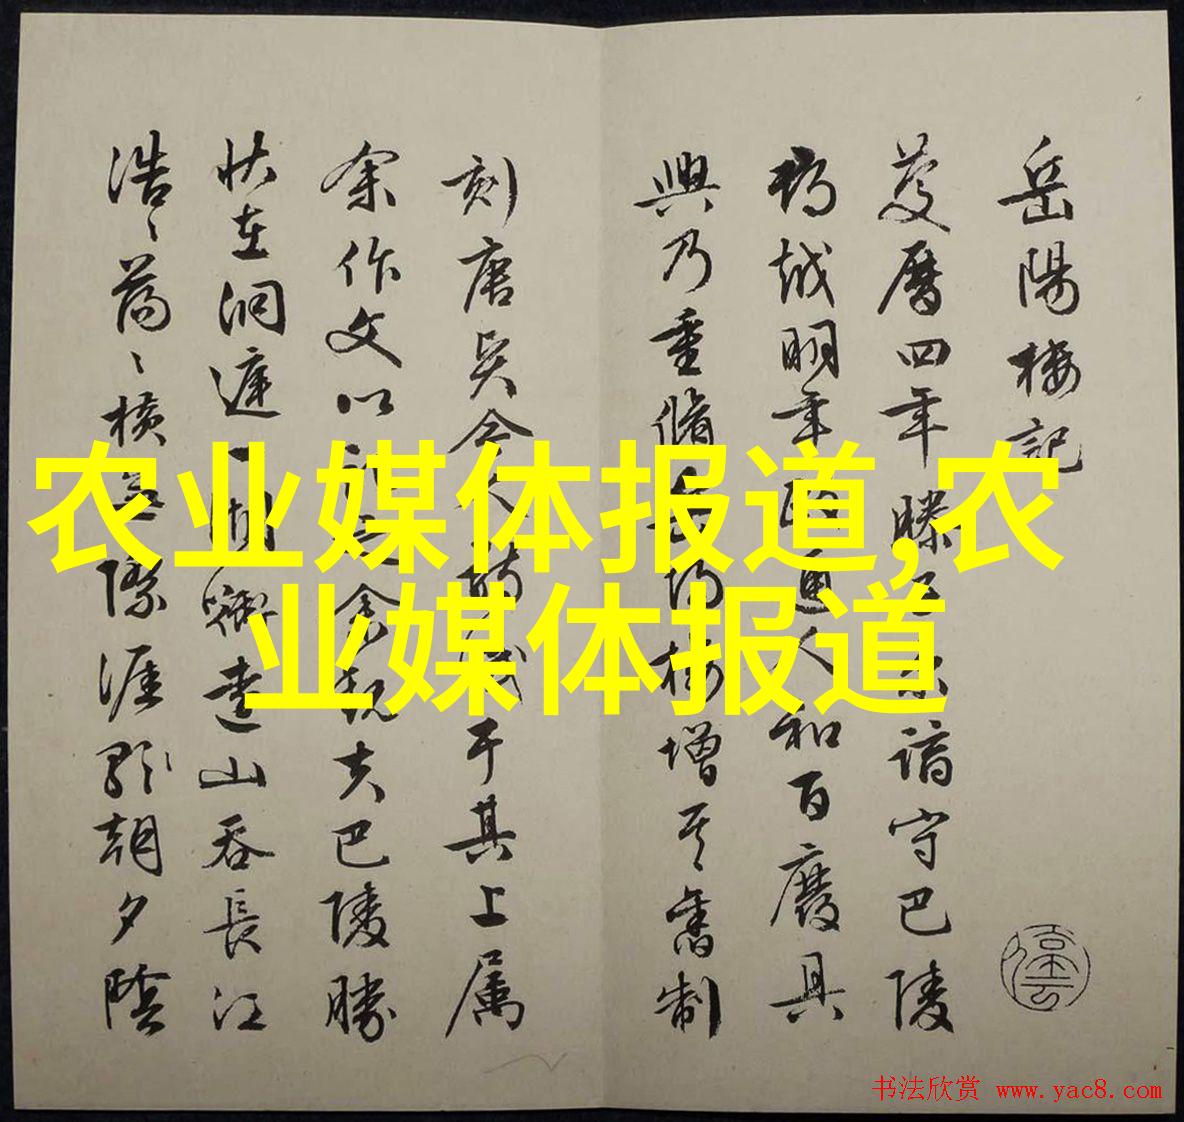 岳陽樓記
慶曆四年滕子京謫守巴陵
郡越明年政通人和百廢具
興乃重脩岳陽樓增其舊制
刻唐賢今人詩賦于其上属
余作文以記之余觀夫巴陵勝
状在洞庭一湖銜遠山吞長江
浩浩蕩蕩橫無際涯朝夕陰
农业媒体报道,农
业媒体报道
书法欣赏 www.yac8.com